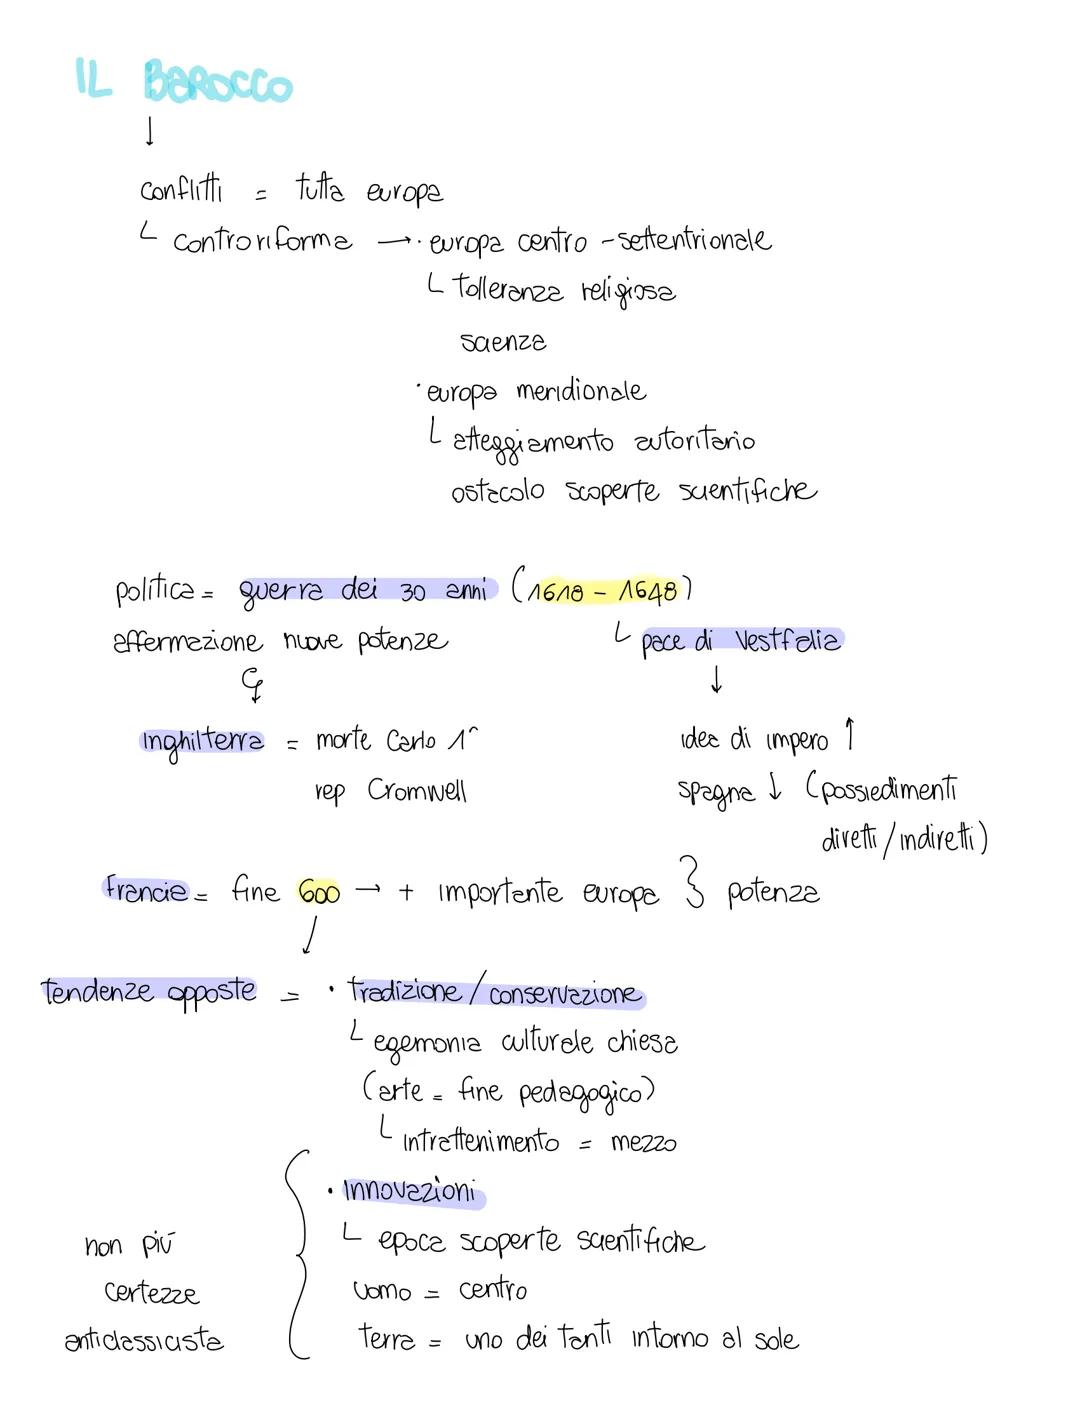 IL BAROCCO
↓
conflitti = tutta europa
└ controriforma → · europa centro-settentrionale
└ tolleranza religiosa
scienza
· europa meridionale
└ atteggiamento autoritario
ostacolo scoperte scientifiche
politica = guerra dei 30 anni (1618 - 1648)
affermazione nuove potenze └ pace di Vestfalia
↓
Inghilterra = morte Carlo 1^ idea di impero ↑
rep Cromwell spagna ↓ (possiedimenti
diretti/indiretti)
Francia = fine 600 → + importante europa } potenza
tendenze opposte = · tradizione/conservazione
└ egemonia culturale chiesa
(arte = fine pedagogico)
└ intrattenimento = mezzo
· innovazioni
non più └ epoca scoperte scientifiche
certezze uomo = centro
anticlassicista terra = uno dei tanti intorno al sole